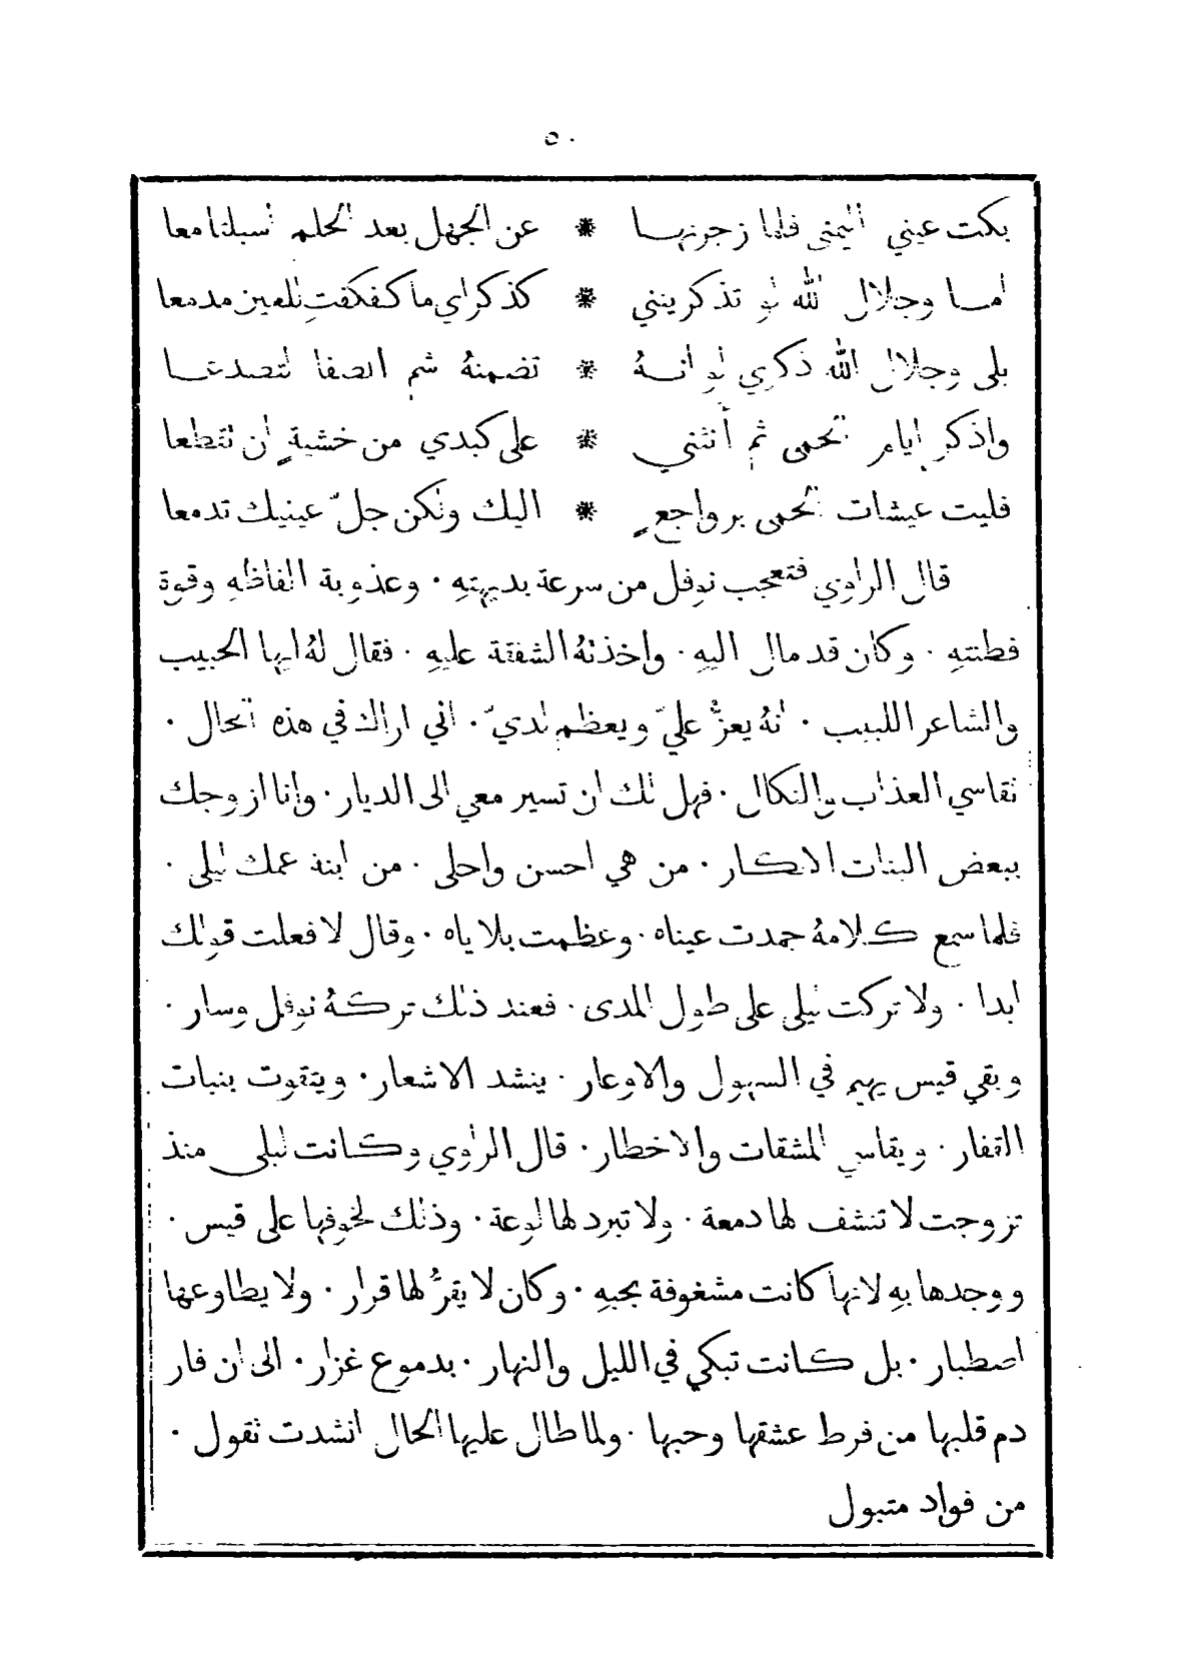 ٥٠
بكت عيني اليمنى فلما زجرتها * عن الجهل بعد الحلم اسبلتا معا
اما وجلال الله لو تذكرينني * كذكراي ما كفكفتِ للعين مدمعا
بلى وجلال الله ذكري لو انهُ * تضمنهُ شم الصفا لتصدعا
واذكر ايام الحمى ثم أنثني * على كبدي من خشيةٍ ان تقطعا
فليت عيشات الحمى برواجعٍ * اليك ولكن جلّ عينيك تدمعا
قال الراوي فتعجب نوفل من سرعة بديهتهِ · وعذوبة الفاظهِ وقوة
فطنتهِ · وكان قد مال اليهِ · واخذتهُ الشفقة عليهِ · فقال لهُ ايها الحبيب
والشاعر اللبيب · انهُ يعزُّ عليّ ويعظم لديّ · اني اراك في هذه الحال ·
تقاسي العذاب والنكال · فهل لك ان تسير معي الى الديار · وانا ازوجك
ببعض البنات الابكار · من هي احسن واحلى · من ابنة عمك ليلى ·
فلما سمع كلامهُ جمدت عيناه · وعظمت بلاياه · وقال لا فعلت قولك
ابدا · ولا تركت ليلى على طول المدى · فعند ذلك تركهُ نوفل وسار ·
وبقي قيس يهيم في السهول والاوعار · ينشد الاشعار · ويتقوت بنبات
القفار · ويقاسي المشقات والاخطار · قال الراوي وكانت ليلى منذ
تزوجت لا تنشف لها دمعة · ولا تبرد لها لوعة · وذلك لخوفها على قيس ·
ووجدها بهِ لانها كانت مشغوفة بحبهِ · وكان لا يقرُّ لها قرار · ولا يطاوعها
اصطبار · بل كانت تبكي في الليل والنهار · بدموع غزار · الى ان فار
دم قلبها من فرط عشقها وحبها · ولما طال عليها الحال انشدت تقول ·
من فواد متبول